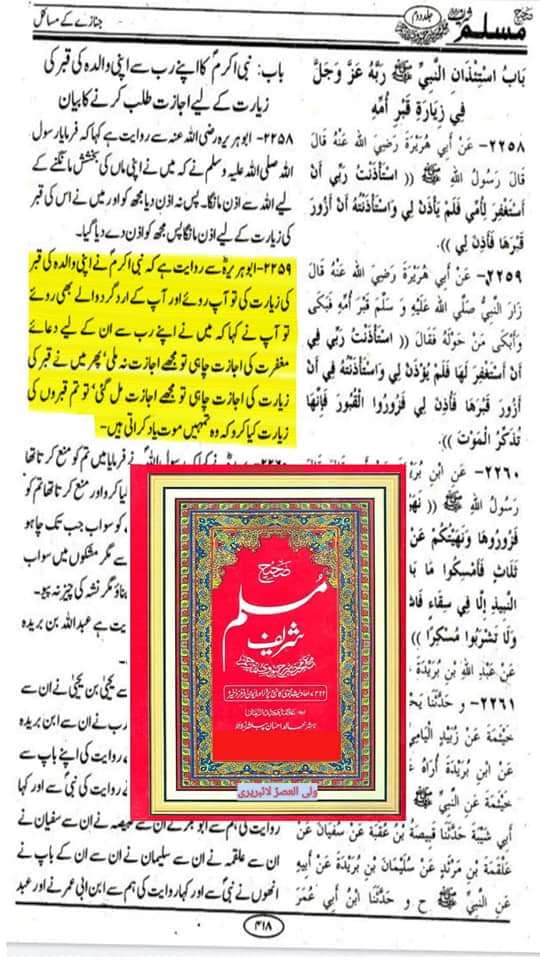 جنازے کے مسائل
جلد دوم
صحیح مسلم شریف
باب: نبی اکرمؐ کا اپنے رب سے اپنی والدہ کی قبر کی
زیارت کے لیے اجازت طلب کرنے کا بیان
۲۲۵۸- ابو ہریرہ رضی اللہ عنہ سے روایت ہے کہا کہ فرمایا رسول
اللہ صلی اللہ علیہ وسلم نے کہ میں نے اپنی ماں کی بخشش مانگنے کے
لیے اللہ سے اذن مانگا۔ پس نہ اذن دیا مجھ کو اور میں نے اس کی قبر
کی زیارت کے لیے اذن مانگا پس مجھ کو اذن دے دیا گیا۔
۲۲۵۹- ابو ہریرہؓ سے روایت ہے کہ نبی اکرمؐ نے اپنی والدہ کی قبر
کی زیارت کی تو آپ روئے اور آپ کے ارد گرد والے بھی روئے
تو آپ نے کہا کہ میں نے اپنے رب سے ان کے لیے دعائے
مغفرت کی اجازت چاہی تو مجھے اجازت نہ ملی' پھر میں نے قبر کی
زیارت کی اجازت چاہی تو مجھے اجازت مل گئی' تو تم قبروں کی
زیارت کیا کرو کہ وہ تمہیں موت یاد کراتی ہیں۔
نے فرمایا میں تم کو منع کرتا تھا
کیا کرو اور منع کرتا تھا تم کو
کو سو اب جب تک چاہو
سے مگر مشکوں میں سو اب
بناؤ مگر نشہ کی چیز نہ پیو۔
یت ہے عبداللہ بن بریدہ
یحییٰ بن یحییٰ نے ان سے
رب نے ان سے ابن بریدہ
روایت کی اپنے باپ سے
نے روایت کی نبیؐ سے اور کہا
روایت کی ہم سے ابو بکر نے ان سے قبیصہ نے ان سے سفیان نے
ان سے علقمہ نے ان سے سلیمان نے ان سے ان کے باپ نے
انھوں نے نبیؐ سے اور کہا روایت کی ہم سے ابن ابی عمر نے اور عبد
بَابُ اسْتِئْذَانِ النَّبِيِّ ﷺ رَبَّهُ عَزَّ وَجَلَّ
فِي زِيَارَةِ قَبْرِ أُمِّهِ
٢٢٥٨- عَنْ أَبِي هُرَيْرَةَ رَضِيَ اللهُ عَنْهُ قَالَ
قَالَ رَسُولُ اللهِ ﷺ (( اسْتَأْذَنْتُ رَبِّي أَنْ
أَسْتَغْفِرَ لِأُمِّي فَلَمْ يَأْذَنْ لِي وَاسْتَأْذَنْتُهُ أَنْ أَزُورَ
قَبْرَهَا فَأَذِنَ لِي )).
٢٢٥٩- عَنْ أَبِي هُرَيْرَةَ رَضِيَ اللهُ عَنْهُ قَالَ
زَارَ النَّبِيُّ صَلَّى اللهُ عَلَيْهِ وَ سَلَّمَ قَبْرَ أُمِّهِ فَبَكَى
وَأَبْكَى مَنْ حَوْلَهُ فَقَالَ (( اسْتَأْذَنْتُ رَبِّي فِي
أَنْ أَسْتَغْفِرَ لَهَا فَلَمْ يُؤْذَنْ لِي وَاسْتَأْذَنْتُهُ فِي أَنْ
أَزُورَ قَبْرَهَا فَأُذِنَ لِي فَزُورُوا الْقُبُورَ فَإِنَّهَا
تُذَكِّرُ الْمَوْتَ )).
٢٢٦٠- عَنْ ابْنِ بُرَيْدَ
رَسُولُ اللهِ ﷺ (( نَهَيْ
فَزُورُوهَا وَنَهَيْتُكُمْ عَنْ
ثَلَاثٍ فَأَمْسِكُوا مَا بَدَ
النَّبِيذِ إِلَّا فِي سِقَاءٍ فَاشْ
وَلَا تَشْرَبُوا مُسْكِرًا ))
عَنْ عَبْدِ اللهِ بْنِ بُرَيْدَةَ
٢٢٦١- و حَدَّثَنَا يَحْ
خَيْثَمَةَ عَنْ زُبَيْدٍ الْيَامِيِّ
عَنْ ابْنِ بُرَيْدَةَ أُرَاهُ عَ
خَيْثَمَةَ عَنِ النَّبِيِّ
أَبِي شَيْبَةَ حَدَّثَنَا قَبِيصَةُ بْنُ عُقْبَةَ عَنْ سُفْيَانَ عَنْ
عَلْقَمَةَ بْنِ مَرْثَدٍ عَنْ سُلَيْمَانَ بْنِ بُرَيْدَةَ عَنْ أَبِيهِ
عَنِ النَّبِيِّ ﷺ ح و حَدَّثَنَا ابْنُ أَبِي عُمَرَ
صحیح
مسلم
شریف
ولی العصرؑ لائبریری
۴۱۸